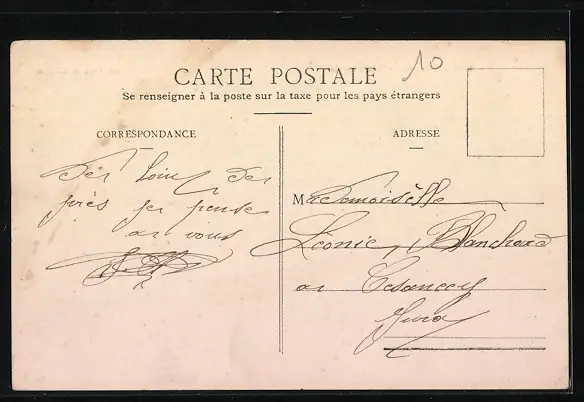 CARTE POSTALE
10
Se renseigner à la poste sur la taxe pour les pays étrangers
CORRESPONDANCE
ADRESSE
Der loin der
près je pense
a vous
Mademoiselle
Léonie, Blanchard
a Cesancey
Jura